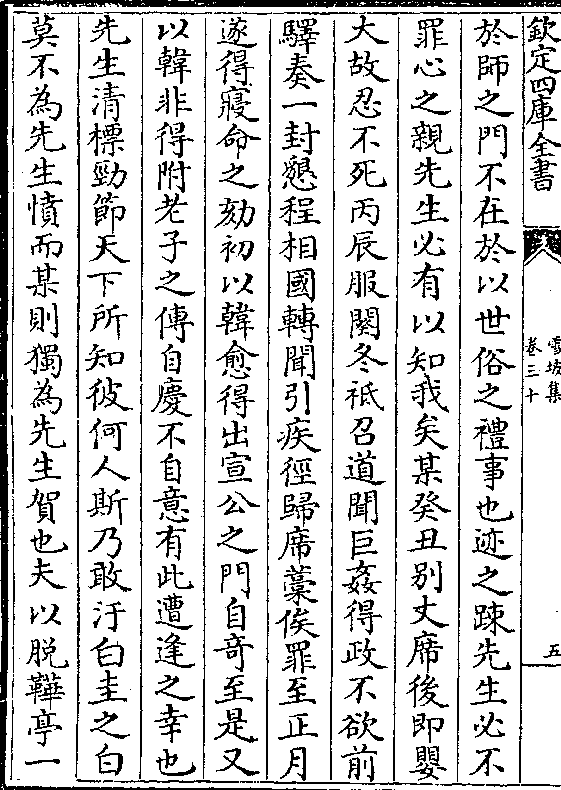 欽定四庫全書
雪坡集
卷三十
五
於師之門不在於以世俗之禮事也迹之踈先生必不
罪心之親先生必有以知我矣某癸丑别丈席後即嬰
大故忍不死丙辰服闋冬祗召道聞巨姦得政不欲前
驛奏一封懇程相國轉聞引疾徑歸席藁俟罪至正月
遂得寢命之劾初以韓愈得出宣公之門自竒至是又
以韓非得附老子之傳自慶不自意有此遭逢之幸也
先生清標勁節天下所知彼何人斯乃敢汙白圭之白
莫不為先生憤而某則獨為先生賀也夫以脱鞾亭一